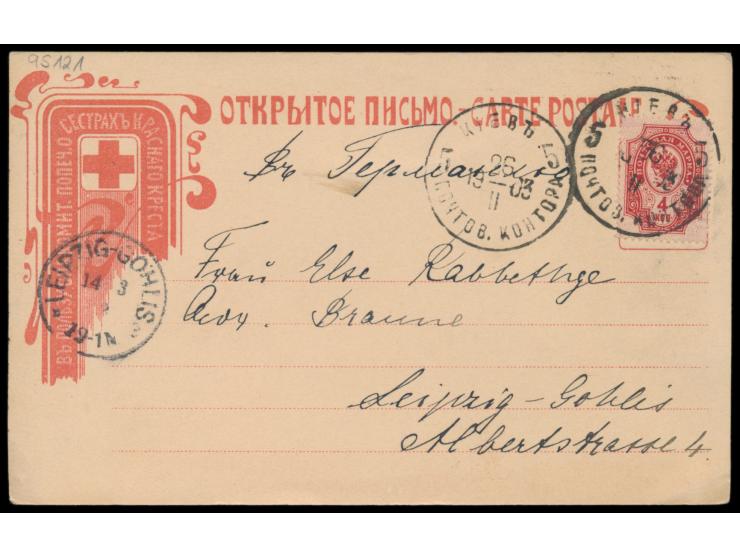 95121
ОТКРЫТОЕ ПИСЬМО.-CARTE POSTALE
ВЪ ПОЛЬЗУ КОМИТ. ПОПЕЧ. О СЕСТРАХЪ КРАСНАГО КРЕСТА
КІЕВЪ
5 5
26
19-03
II
ПОЧТОВ. КОНТОРА
КІЕВЪ
5 5
26
II
ПОЧТОВ.
ПОЧТОВАЯ МАРКА
4
КОП
въ Германію
LEIPZIG-GOHLIS
14 3
Frau Else Rabbethge
Braune
Leipzig-Gohlis
Albertstrasse 4